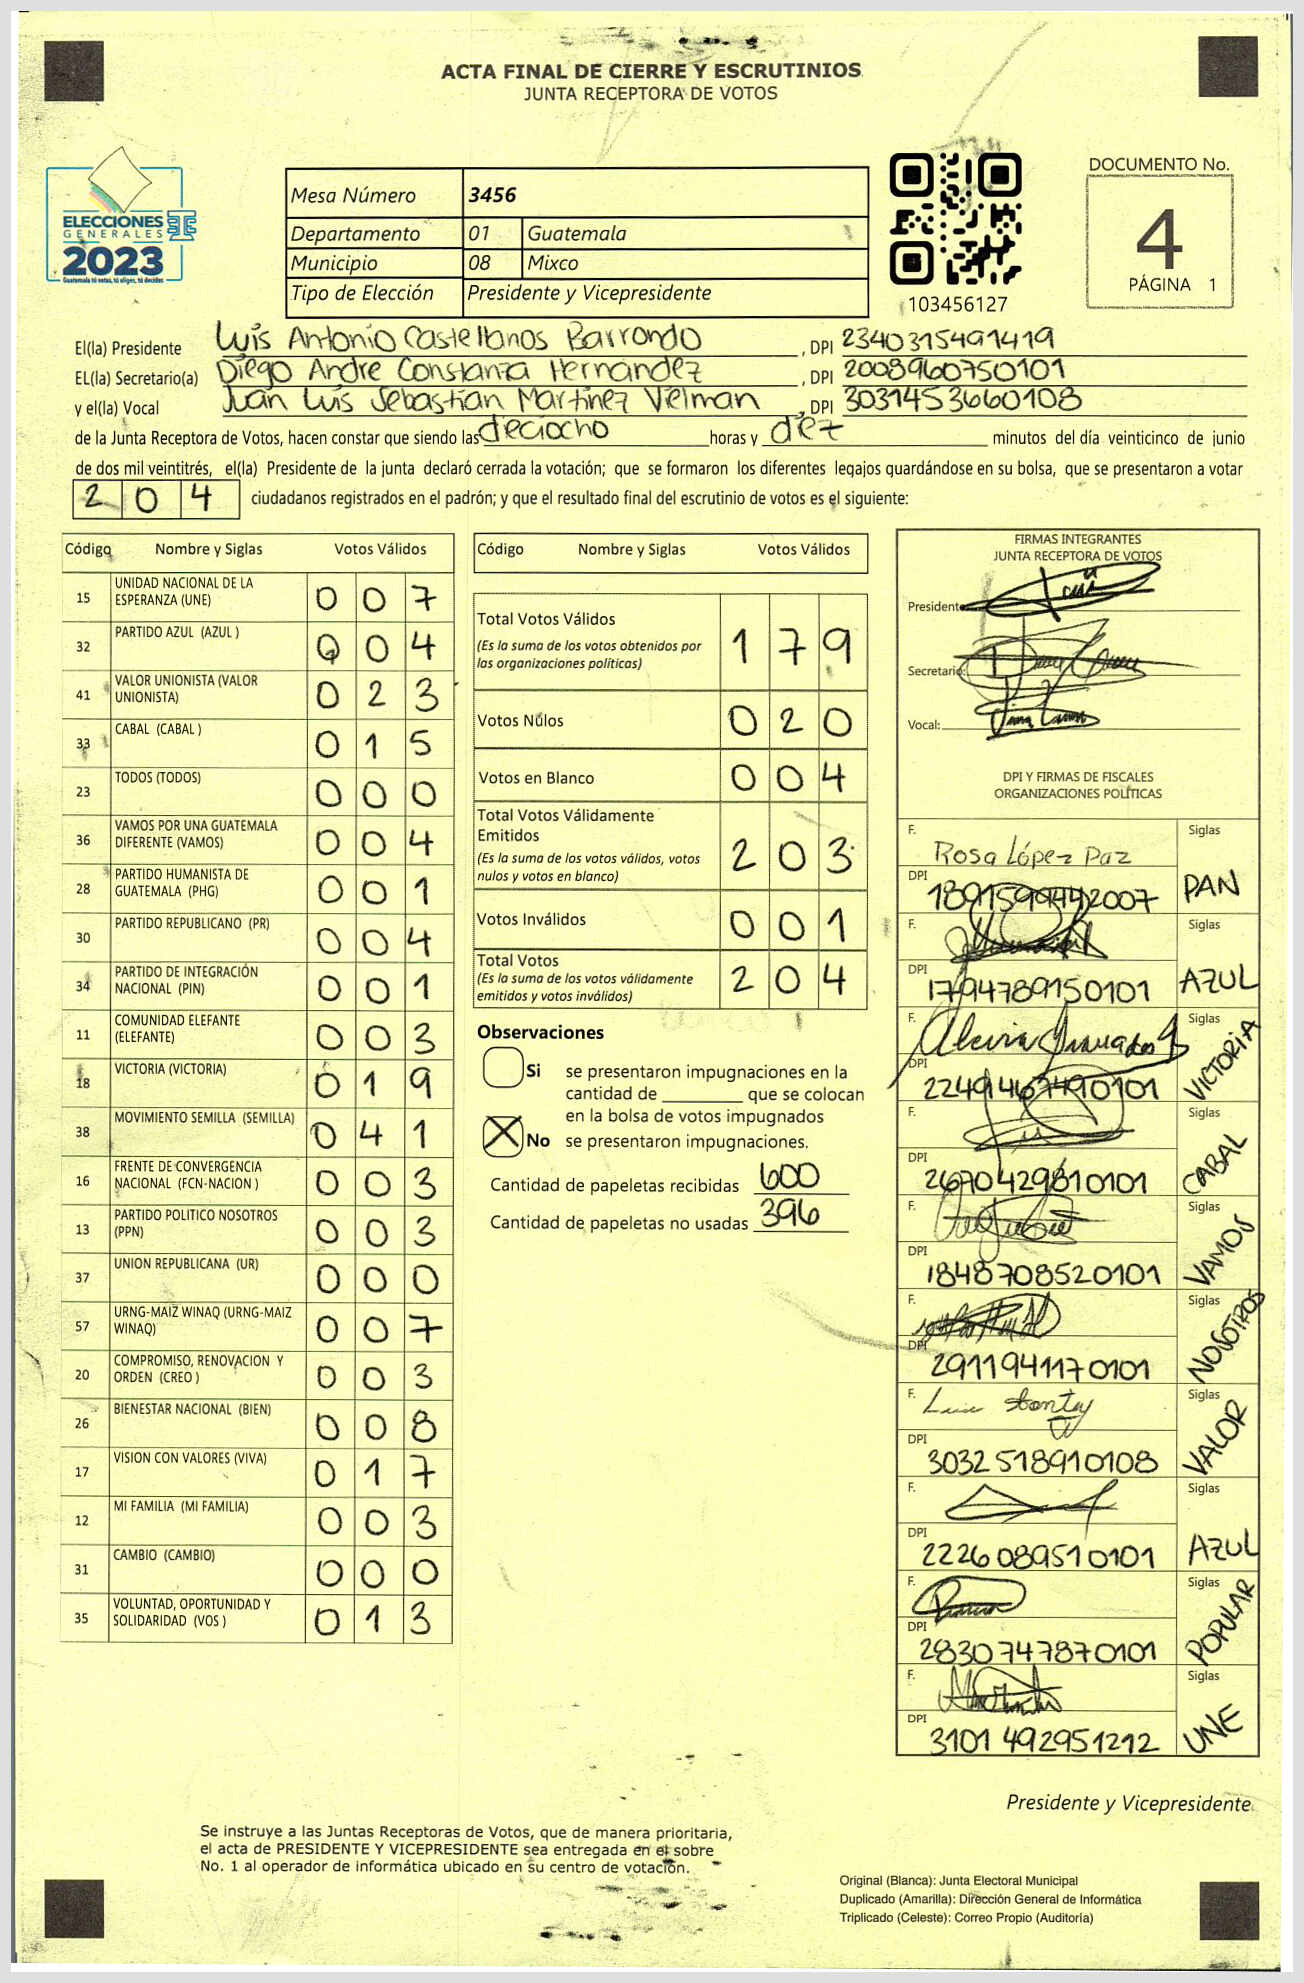 ACTA FINAL DE CIERRE Y ESCRUTINIOS
JUNTA RECEPTORA DE VOTOS
ELECCIONES
GENERALES
2023
Guatemala tú votas, tú eliges, tú decides
Mesa Número 3456
Departamento 01 Guatemala
Municipio 08 Mixco
Tipo de Elección Presidente y Vicepresidente
103456127
DOCUMENTO No.
4
PÁGINA 1
El(la) Presidente Luis Antonio Castellanos Barrondo, DPI 2340315491419
EL(la) Secretario(a) Diego Andre Constanza Hernández, DPI 2008960750101
y el(la) Vocal Juan Luis Sebastian Martínez Vielman, DPI 3031453660108
de la Junta Receptora de Votos, hacen constar que siendo las deciocho horas y diez minutos del día veinticinco de junio
de dos mil veintitrés, el(la) Presidente de la junta declaró cerrada la votación; que se formaron los diferentes legajos guardándose en su bolsa, que se presentaron a votar
204 ciudadanos registrados en el padrón; y que el resultado final del escrutinio de votos es el siguiente:
Código Nombre y Siglas Votos Válidos
15 UNIDAD NACIONAL DE LA ESPERANZA (UNE) 007
32 PARTIDO AZUL (AZUL ) 004
41 VALOR UNIONISTA (VALOR UNIONISTA) 023
33 CABAL (CABAL ) 015
23 TODOS (TODOS) 000
36 VAMOS POR UNA GUATEMALA DIFERENTE (VAMOS) 004
28 PARTIDO HUMANISTA DE GUATEMALA (PHG) 001
30 PARTIDO REPUBLICANO (PR) 004
34 PARTIDO DE INTEGRACIÓN NACIONAL (PIN) 001
11 COMUNIDAD ELEFANTE (ELEFANTE) 003
18 VICTORIA (VICTORIA) 019
38 MOVIMIENTO SEMILLA (SEMILLA) 041
16 FRENTE DE CONVERGENCIA NACIONAL (FCN-NACION ) 003
13 PARTIDO POLITICO NOSOTROS (PPN) 003
37 UNION REPUBLICANA (UR) 000
57 URNG-MAIZ WINAQ (URNG-MAIZ WINAQ) 007
20 COMPROMISO, RENOVACION Y ORDEN (CREO ) 003
26 BIENESTAR NACIONAL (BIEN) 008
17 VISION CON VALORES (VIVA) 017
12 MI FAMILIA (MI FAMILIA) 003
31 CAMBIO (CAMBIO) 000
35 VOLUNTAD, OPORTUNIDAD Y SOLIDARIDAD (VOS ) 013
Código Nombre y Siglas Votos Válidos
Total Votos Válidos 179
(Es la suma de los votos obtenidos por
las organizaciones políticas)
Votos Nulos 020
Votos en Blanco 004
Total Votos Válidamente
Emitidos 203
(Es la suma de los votos válidos, votos
nulos y votos en blanco)
Votos Inválidos 001
Total Votos 204
(Es la suma de los votos válidamente
emitidos y votos inválidos)
Observaciones
Si se presentaron impugnaciones en la
cantidad de ________ que se colocan
en la bolsa de votos impugnados
X No se presentaron impugnaciones.
Cantidad de papeletas recibidas 600
Cantidad de papeletas no usadas 396
FIRMAS INTEGRANTES
JUNTA RECEPTORA DE VOTOS
Presidente:
Secretario:
Vocal:
DPI Y FIRMAS DE FISCALES
ORGANIZACIONES POLÍTICAS
F. Rosa López Paz Siglas
DPI 1891599442007 PAN
F. Siglas
DPI 1794789150101 AZUL
F. Siglas
DPI 22491467490101 VICTORIA
F. Siglas
DPI 2670429810101 CABAL
F. Siglas
DPI 1848708520101 VAMOS
F. Siglas
DPI 2911941170101 NOSOTROS
F. Siglas
DPI 3032518910108 VALOR
F. Siglas
DPI 2226089510101 AZUL
F. Siglas
DPI 2830747870101 POPULAR
F. Siglas
DPI 3101492951212 UNE
Presidente y Vicepresidente
Se instruye a las Juntas Receptoras de Votos, que de manera prioritaria,
el acta de PRESIDENTE Y VICEPRESIDENTE sea entregada en el sobre
No. 1 al operador de informática ubicado en su centro de votación.
Original (Blanca): Junta Electoral Municipal
Duplicado (Amarilla): Dirección General de Informática
Triplicado (Celeste): Correo Propio (Auditoría)